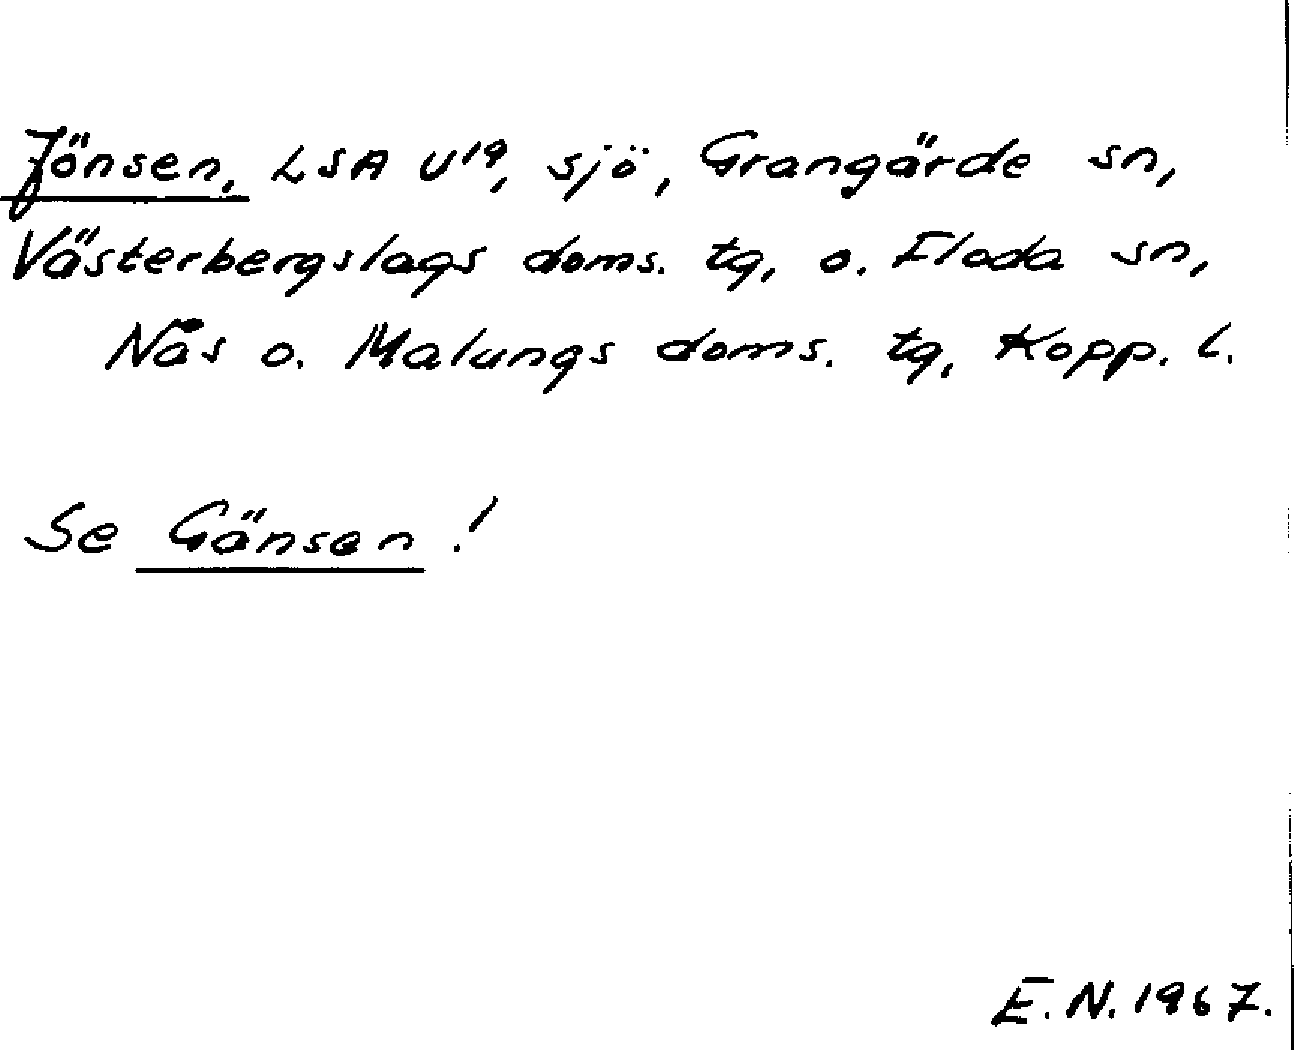 Jönsen, LSA U¹⁹, sjö, Grangärde sn,
Västerbergslags doms. tg, o. Floda sn,
Nås o. Malungs doms. tg, Kopp. l.
Se Gänsen!
E.N. 1967.